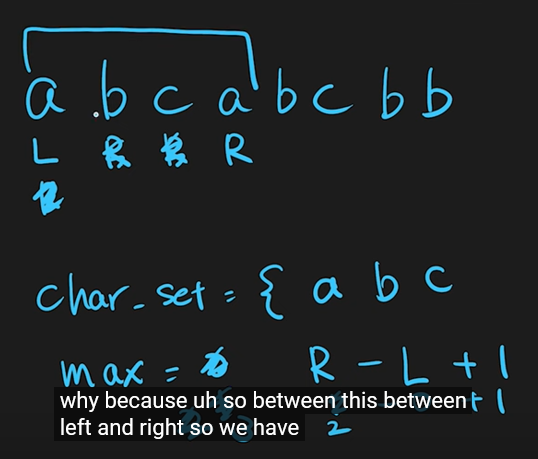 a b c a b c b b
L R R R
char_set = { a b c
max = R - L + 1
+ 1
why because uh so between this between
left and right so we have
2